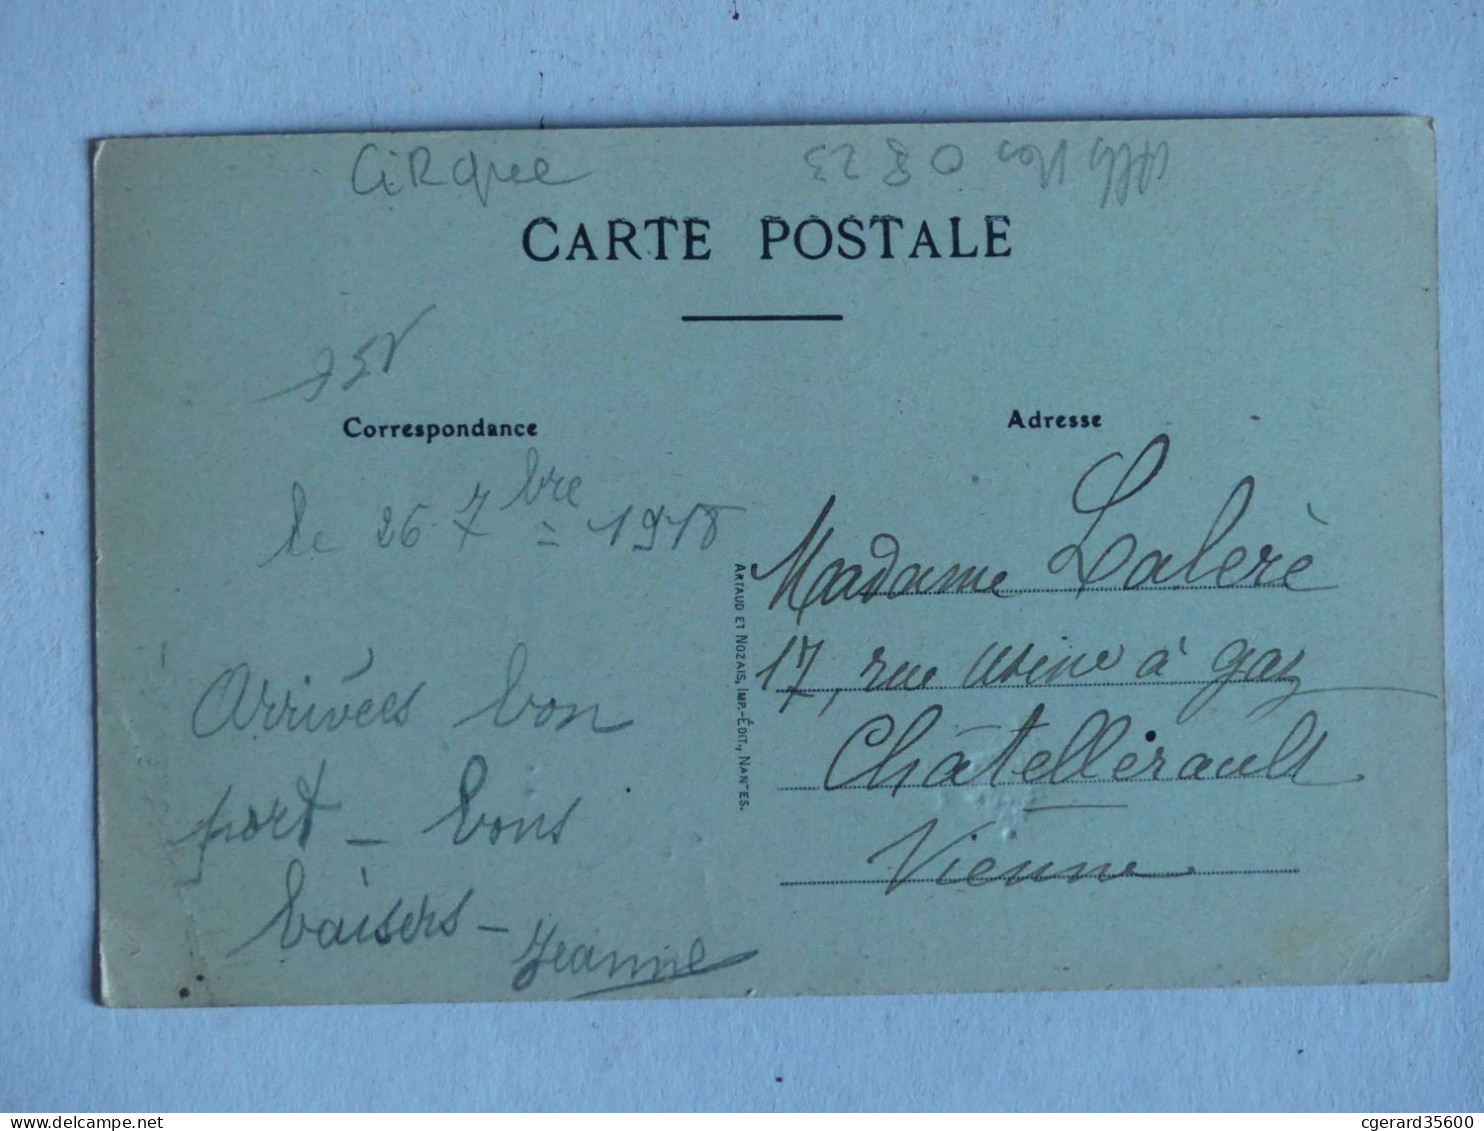 CiRque
CARTE POSTALE
Correspondance
le 26 7bre = 1918
Arrivées bon
port _ Bons
baisers _
Jeanne
ARTAUD ET NOZAIS, IMP.-ÉDIT., NANTES.
Adresse
Madame Laleré
17, rue usine à gaz
Châtellerault
Vienne
delcampe.net
cgerard35600